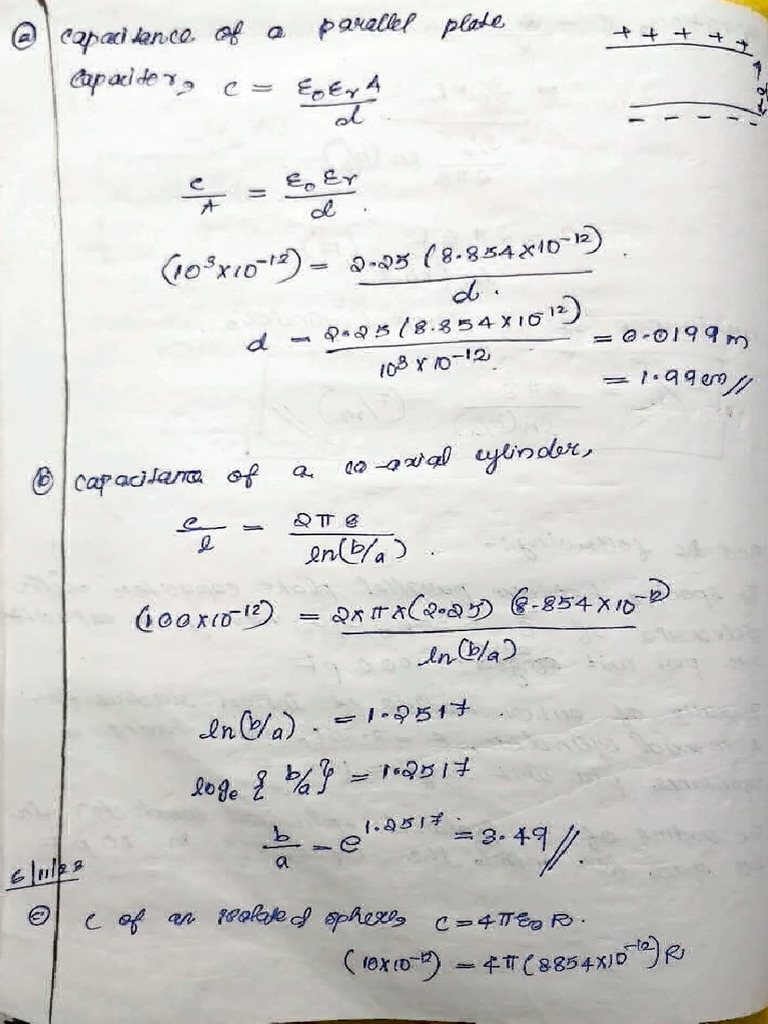 ⓐ capacitance of a parallel plate
+ + + + +
capacitor, c = ε₀εᵣA / d
d
- - - - -
c/A = ε₀εᵣ / d.
(10³×10⁻¹²) = 2.25 (8.854×10⁻¹²) / d.
d = 2.25 (8.854×10¹²) / 10³×10⁻¹² = 0.0199 m
= 1.99 cm //
ⓑ capacitance of a co-axial cylinder,
c/l = 2πε / ln(b/a).
(100×10⁻¹²) = 2×π×(2.25) (8.854×10⁻¹²) / ln(b/a)
ln(b/a). = 1.2517.
logₑ {b/a} = 1.2517
b/a = e^1.2517 = 3.49 //.
6/11/23
ⓒ c of an isolated sphere, c = 4πε₀ R.
(10×10⁻¹²) = 4π(8854×10⁻¹²) R